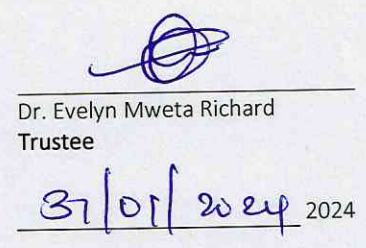 Dr. Evelyn Mweta Richard
Trustee
31/01/2024 2024